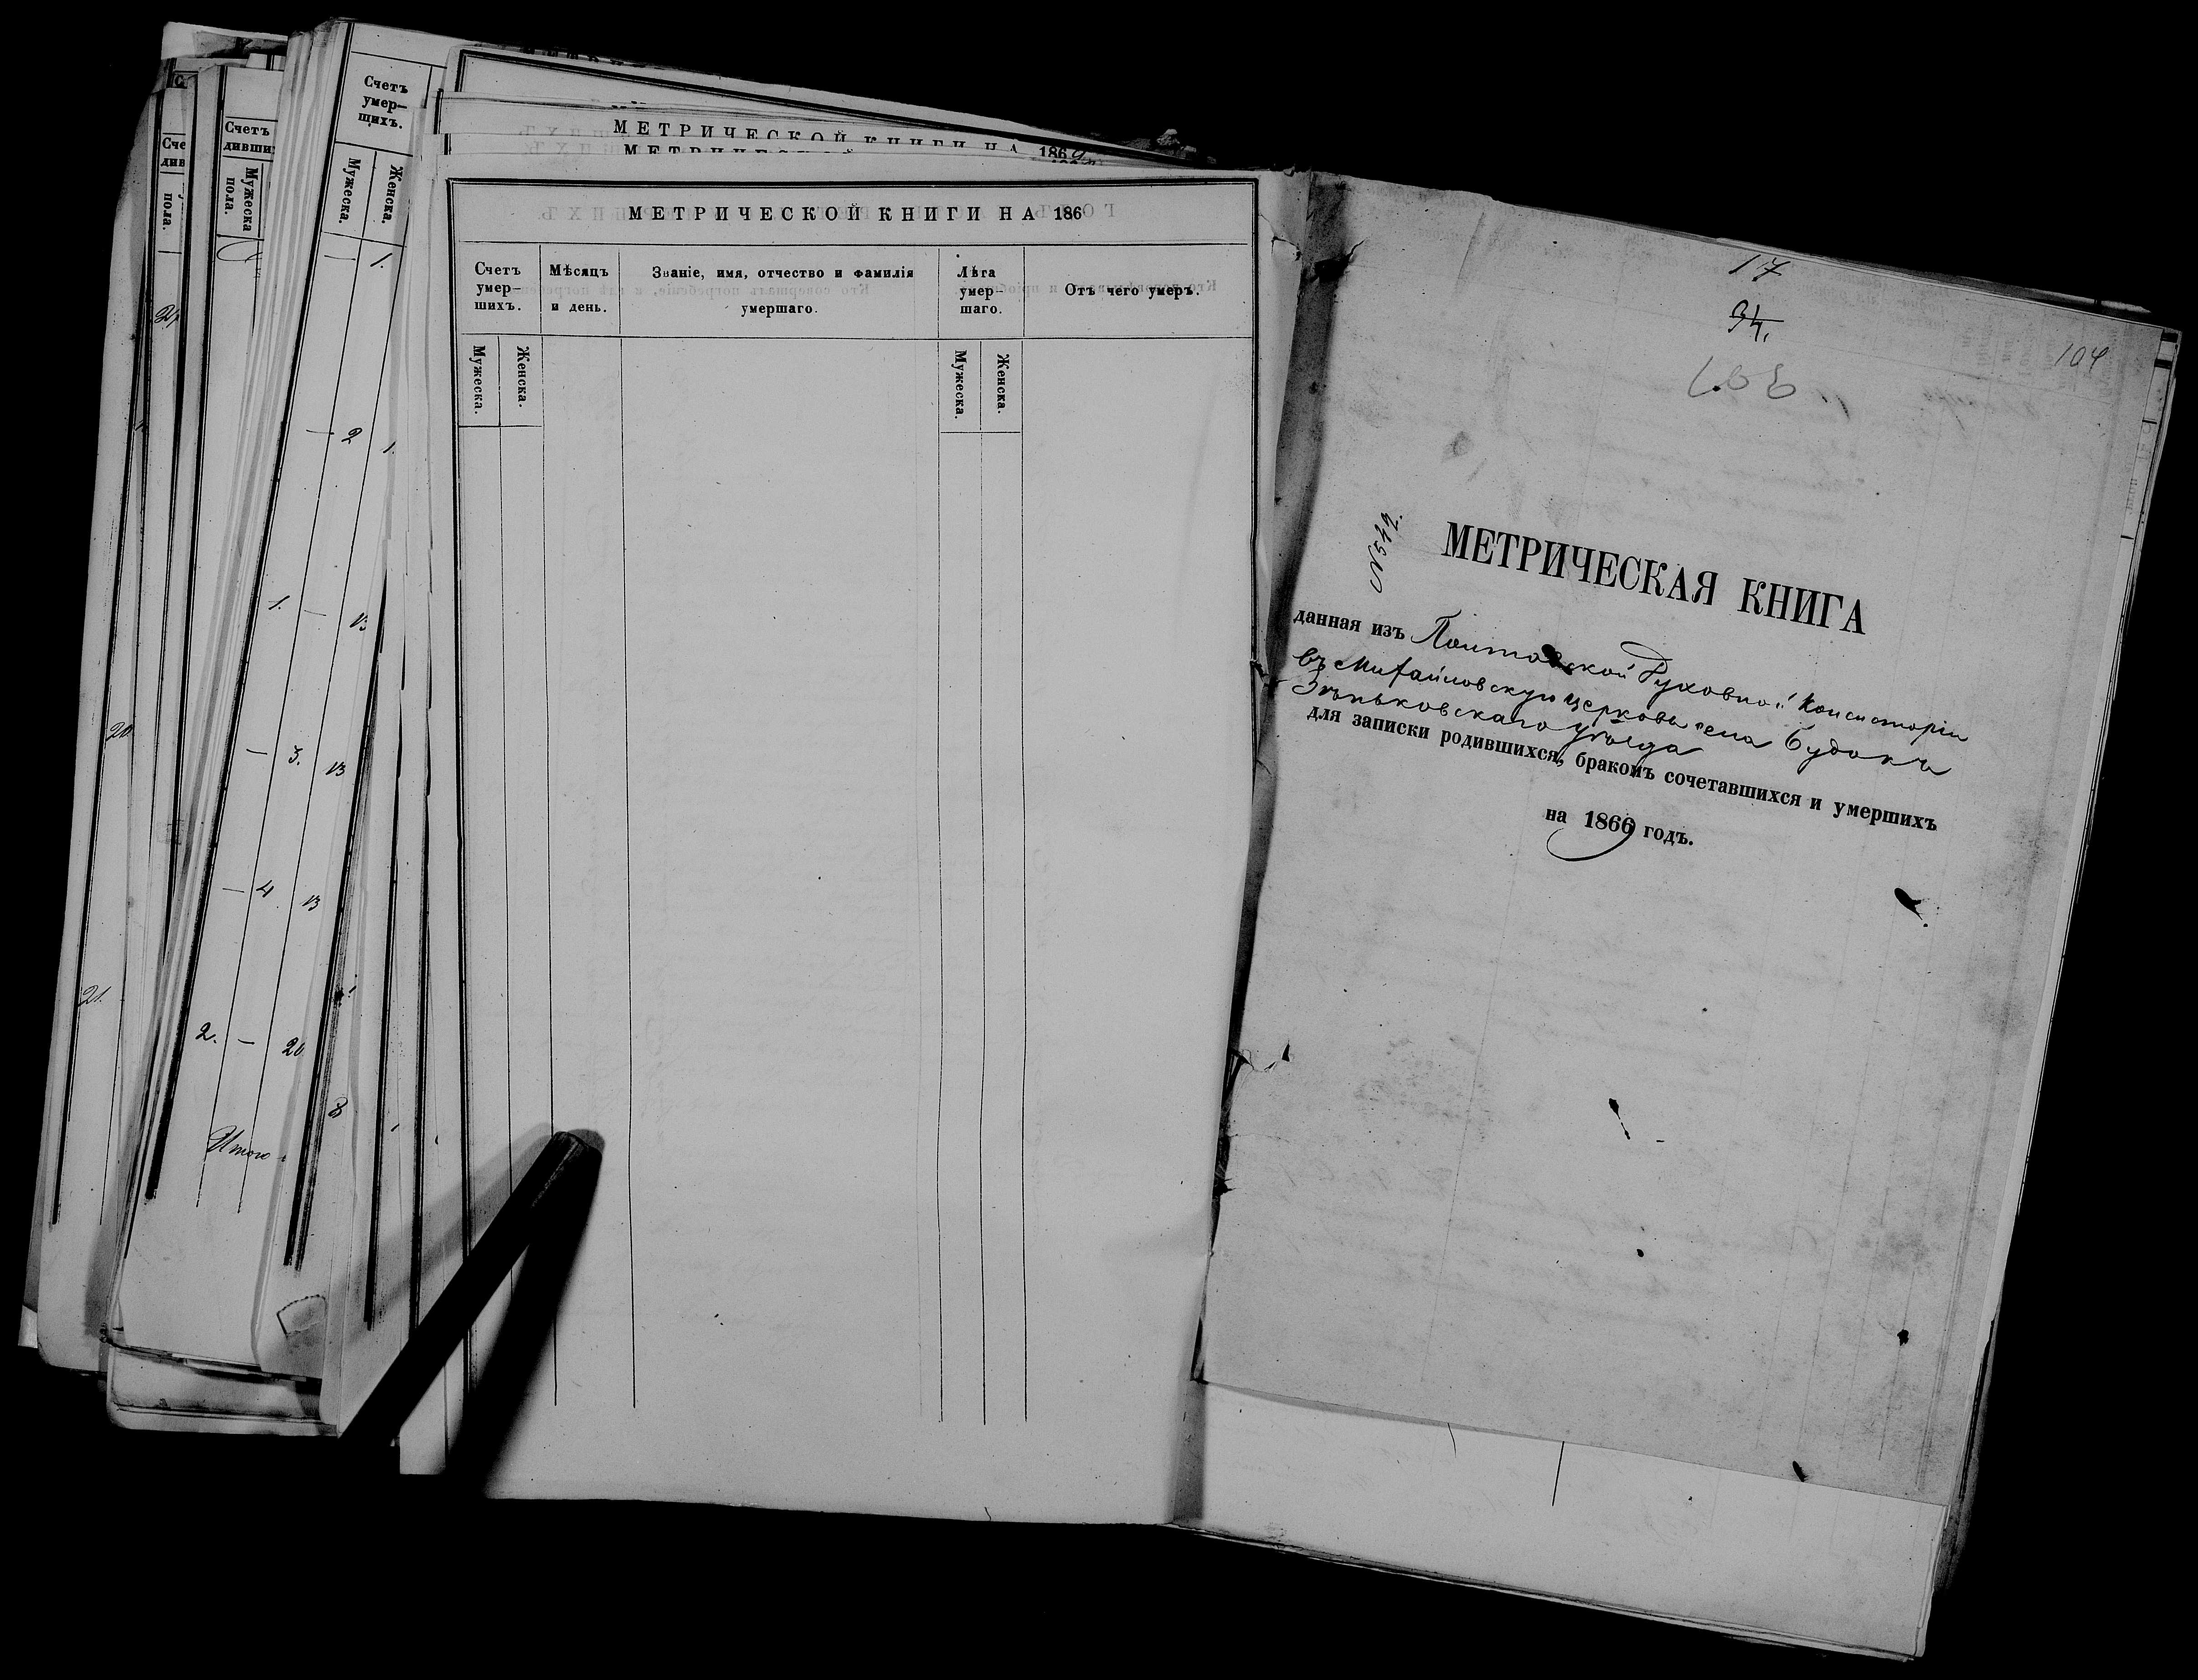 Счетъ
дивши
Мужеска
пола.
пола.
Счетъ
умер-
щихъ.
Мужеска.
Женска.
1.
2
1.
1.
3.
4
2.
20
20
21.
Итого
МЕТРИЧЕСКОЙ КНИГИ НА 1869
МЕТРИЧЕСКОЙ КНИГИ НА 186
Счетъ умер- шихъ.
Мѣсяцъ и день.
Званіе, имя, отчество и фамилія умершаго.
Лѣта умер- шаго.
Отъ чего умеръ.
Мужеска.
Женска.
Мужеска.
Женска.
17
34.
104
МЕТРИЧЕСКАЯ КНИГА
данная изъ Полтавской Духовной Консисторіи
въ Михайловскую церковь села Будокъ
Зѣньковскаго уѣзда
для записки родившихся, бракомъ сочетавшихся и умершихъ
на 1869 годъ.